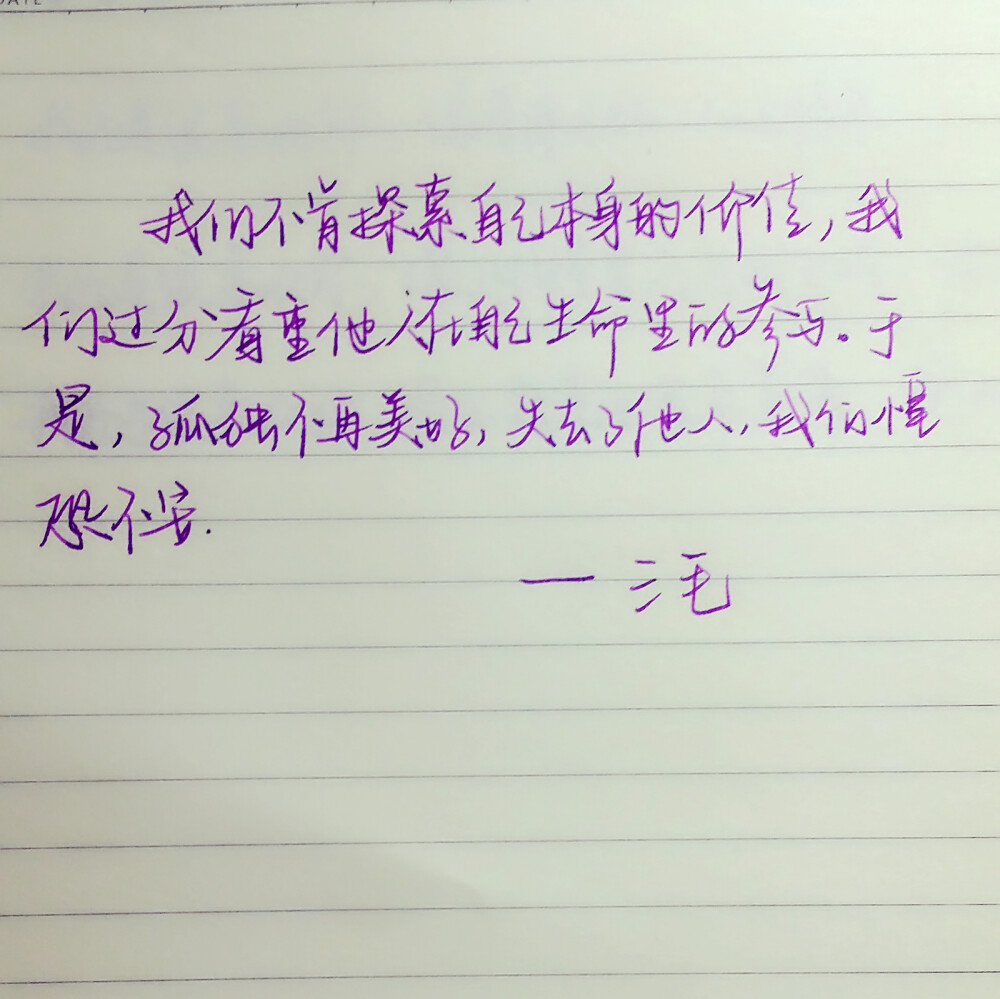 DATE
我们不肯探索自己本身的价值，我
们过分看重他人在自己生命里的参与。于
是，孤独不再美好，失去了他人，我们惶
恐不安.
— 三毛